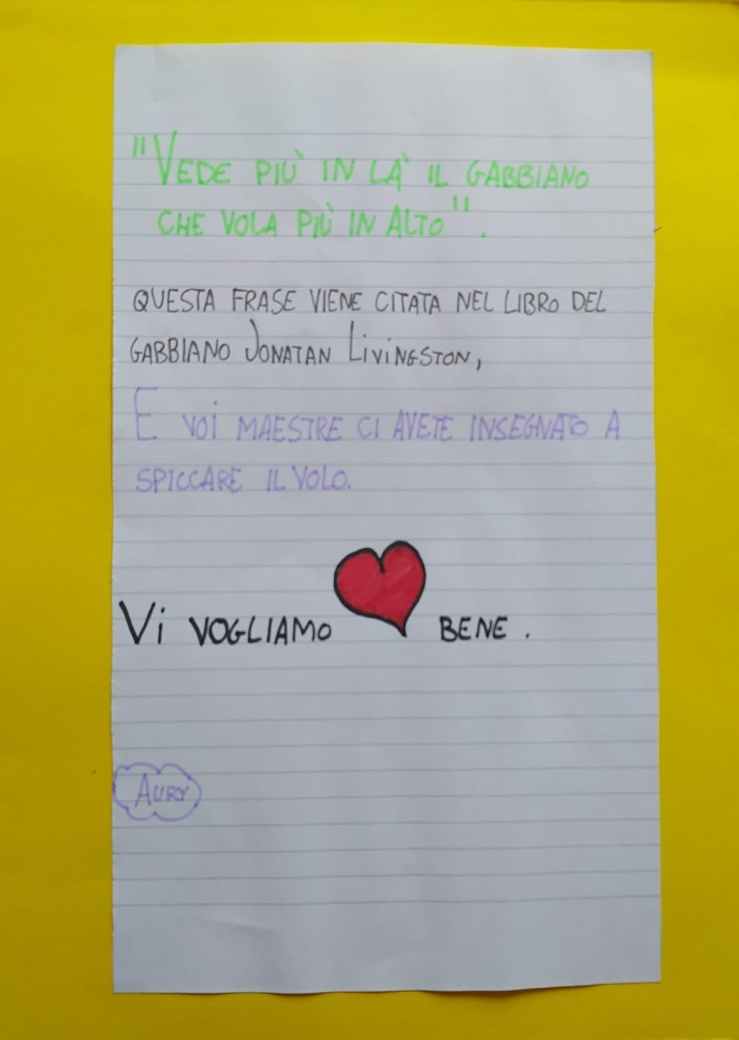 "VEDE PIÙ IN LÀ IL GABBIANO
CHE VOLA PIÙ IN ALTO".
QUESTA FRASE VIENE CITATA NEL LIBRO DEL
GABBIANO JONATAN LIVINGSTON,
E VOI MAESTRE CI AVETE INSEGNATO A
SPICCARE IL VOLO.
VI VOGLIAMO BENE.
AURY